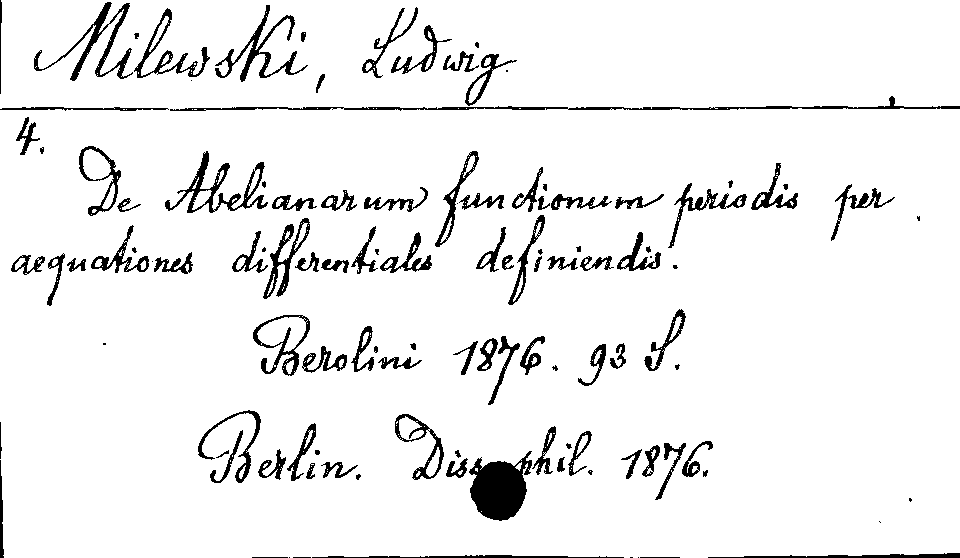 Milewski, Ludwig
4.
De Abelianarum functionum periodis per
aequationes differentiales definiendis.
Berolini 1876. 93 S.
Berlin. Diss. phil. 1876.